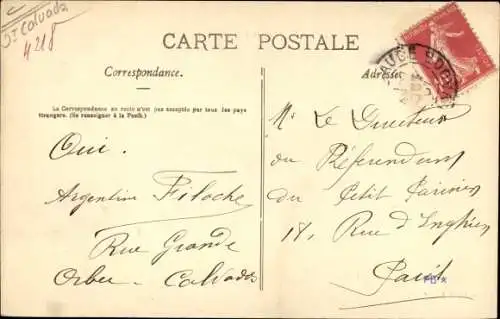 Dt Calvados
4218
CARTE POSTALE
Correspondance.
Adresse
La Correspondance au recto n'est pas acceptée par tous les pays
étrangers. (Se renseigner à la Poste.)
Oui.
Argentine Filoche
Rue Grande
Orbec - Calvados
Mr Le Directeur
du Référendum
du Petit Parisien
18, Rue d'Enghien
Paris